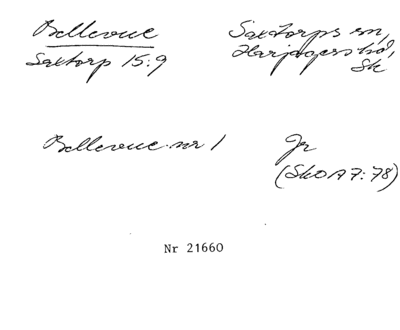 Bellevue
Saxtorp 15:9
Saxtorps sn,
Harjagers hd,
Sk
Bellevue nr 1
Jr
(SkO A 7: 78)
Nr 21660